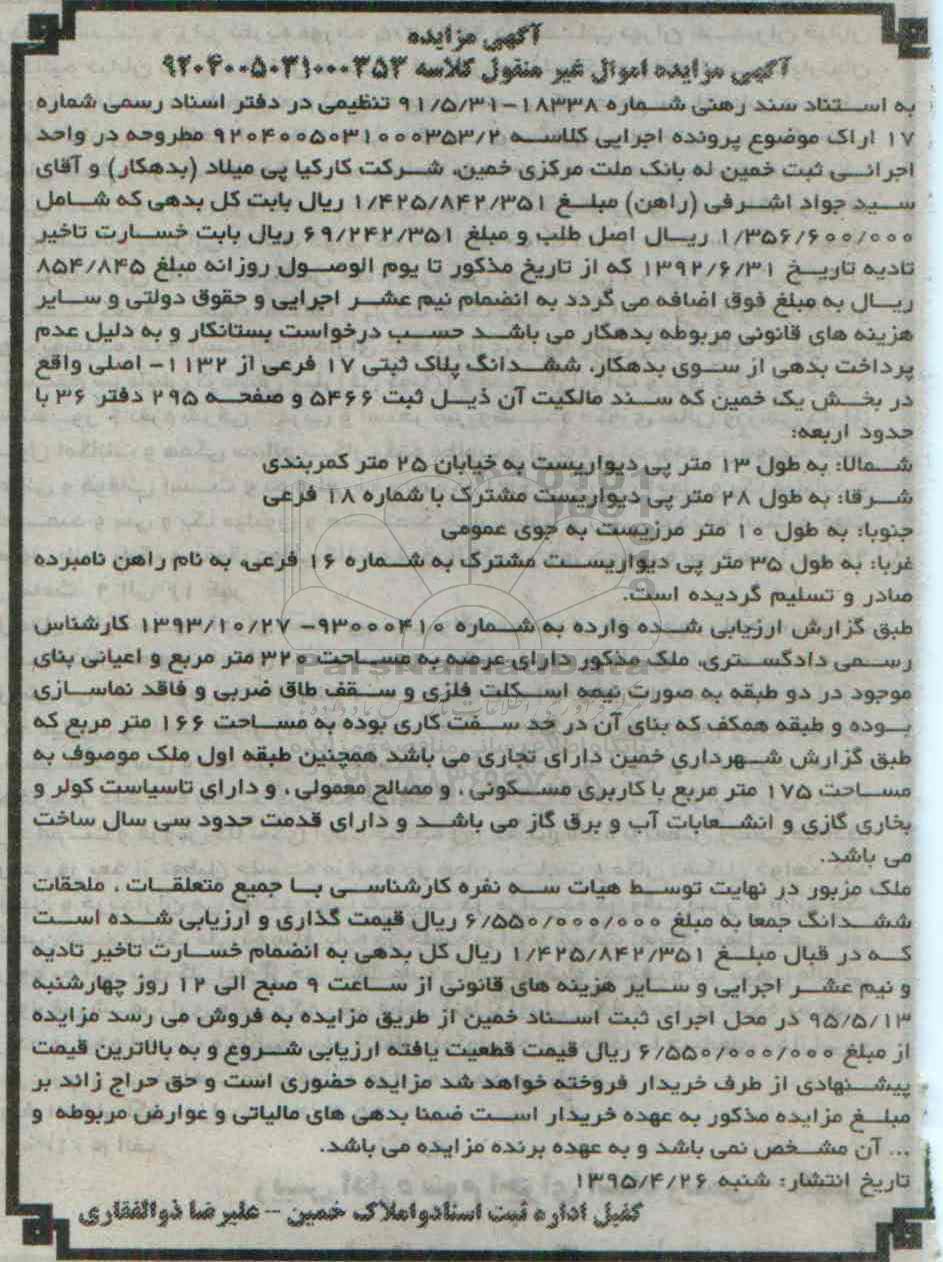 آگهی مزایده
آگهی مزایده اموال غیر منقول کلاسه ۹۲۰۴۰۰۵۰۳۱۰۰۰۳۵۳
به استناد سند رهنی شماره ۱۸۳۳۸-۹۱/۵/۳۱ تنظیمی در دفتر اسناد رسمی شماره
۱۷ اراک موضوع پرونده اجرایی کلاسه ۹۲۰۴۰۰۵۰۳۱۰۰۰۳۵۳/۲ مطروحه در واحد
اجرائی ثبت خمین له بانک ملت مرکزی خمین، شرکت کارکیا پی میلاد (بدهکار) و آقای
سید جواد اشرفی (راهن) مبلغ ۱/۴۲۵/۸۴۲/۳۵۱ ریال بابت کل بدهی که شامل
۱/۳۵۶/۶۰۰/۰۰۰ ریال اصل طلب و مبلغ ۶۹/۲۴۲/۳۵۱ ریال بابت خسارت تاخیر
تادیه تاریخ ۱۳۹۲/۶/۳۱ که از تاریخ مذکور تا یوم الوصول روزانه مبلغ ۸۵۴/۸۴۵
ریال به مبلغ فوق اضافه می گردد به انضمام نیم عشر اجرایی و حقوق دولتی و سایر
هزینه های قانونی مربوطه بدهکار می باشد حسب درخواست بستانکار و به دلیل عدم
پرداخت بدهی از سوی بدهکار، ششدانگ پلاک ثبتی ۱۷ فرعی از ۱۱۳۲- اصلی واقع
در بخش یک خمین که سند مالکیت آن ذیل ثبت ۵۴۶۶ و صفحه ۲۹۵ دفتر ۳۶ با
حدود اربعه:
شمالا: به طول ۱۳ متر پی دیواریست به خیابان ۲۵ متر کمربندی
شرقا: به طول ۲۸ متر پی دیواریست مشترک با شماره ۱۸ فرعی
جنوبا: به طول ۱۰ متر مرزیست به جوی عمومی
غربا: به طول ۳۵ متر پی دیواریست مشترک به شماره ۱۶ فرعی، به نام راهن نامبرده
صادر و تسلیم گردیده است.
طبق گزارش ارزیابی شده وارده به شماره ۹۳۰۰۰۴۱۰- ۱۳۹۳/۱۰/۲۷ کارشناس
رسمی دادگستری، ملک مذکور دارای عرصه به مساحت ۳۲۰ متر مربع و اعیانی بنای
موجود در دو طبقه به صورت نیمه اسکلت فلزی و سقف طاق ضربی و فاقد نماسازی
بوده و طبقه همکف که بنای آن در حد سفت کاری بوده به مساحت ۱۶۶ متر مربع که
طبق گزارش شهرداری خمین دارای تجاری می باشد همچنین طبقه اول ملک موصوف به
مساحت ۱۷۵ متر مربع با کاربری مسکونی ، و مصالح معمولی ، و دارای تاسیاست کولر و
بخاری گازی و انشعابات آب و برق گاز می باشد و دارای قدمت حدود سی سال ساخت
می باشد.
ملک مزبور در نهایت توسط هیات سه نفره کارشناسی با جمیع متعلقات ، ملحقات
ششدانگ جمعا به مبلغ ۶/۵۵۰/۰۰۰/۰۰۰ ریال قیمت گذاری و ارزیابی شده است
که در قبال مبلغ ۱/۴۲۵/۸۴۲/۳۵۱ ریال کل بدهی به انضمام خسارت تاخیر تادیه
و نیم عشر اجرایی و سایر هزینه های قانونی از ساعت ۹ صبح الی ۱۲ روز چهارشنبه
۹۵/۵/۱۳ در محل اجرای ثبت اسناد خمین از طریق مزایده به فروش می رسد مزایده
از مبلغ ۶/۵۵۰/۰۰۰/۰۰۰ ریال قیمت قطعیت یافته ارزیابی شروع و به بالاترین قیمت
پیشنهادی از طرف خریدار فروخته خواهد شد مزایده حضوری است و حق حراج زائد بر
مبلغ مزایده مذکور به عهده خریدار است ضمنا بدهی های مالیاتی و عوارض مربوطه و
... آن مشخص نمی باشد و به عهده برنده مزایده می باشد.
تاریخ انتشار: شنبه ۱۳۹۵/۴/۲۶
کفیل اداره ثبت اسنادواملاک خمین – علیرضا ذوالفقاری
ParsNamadData